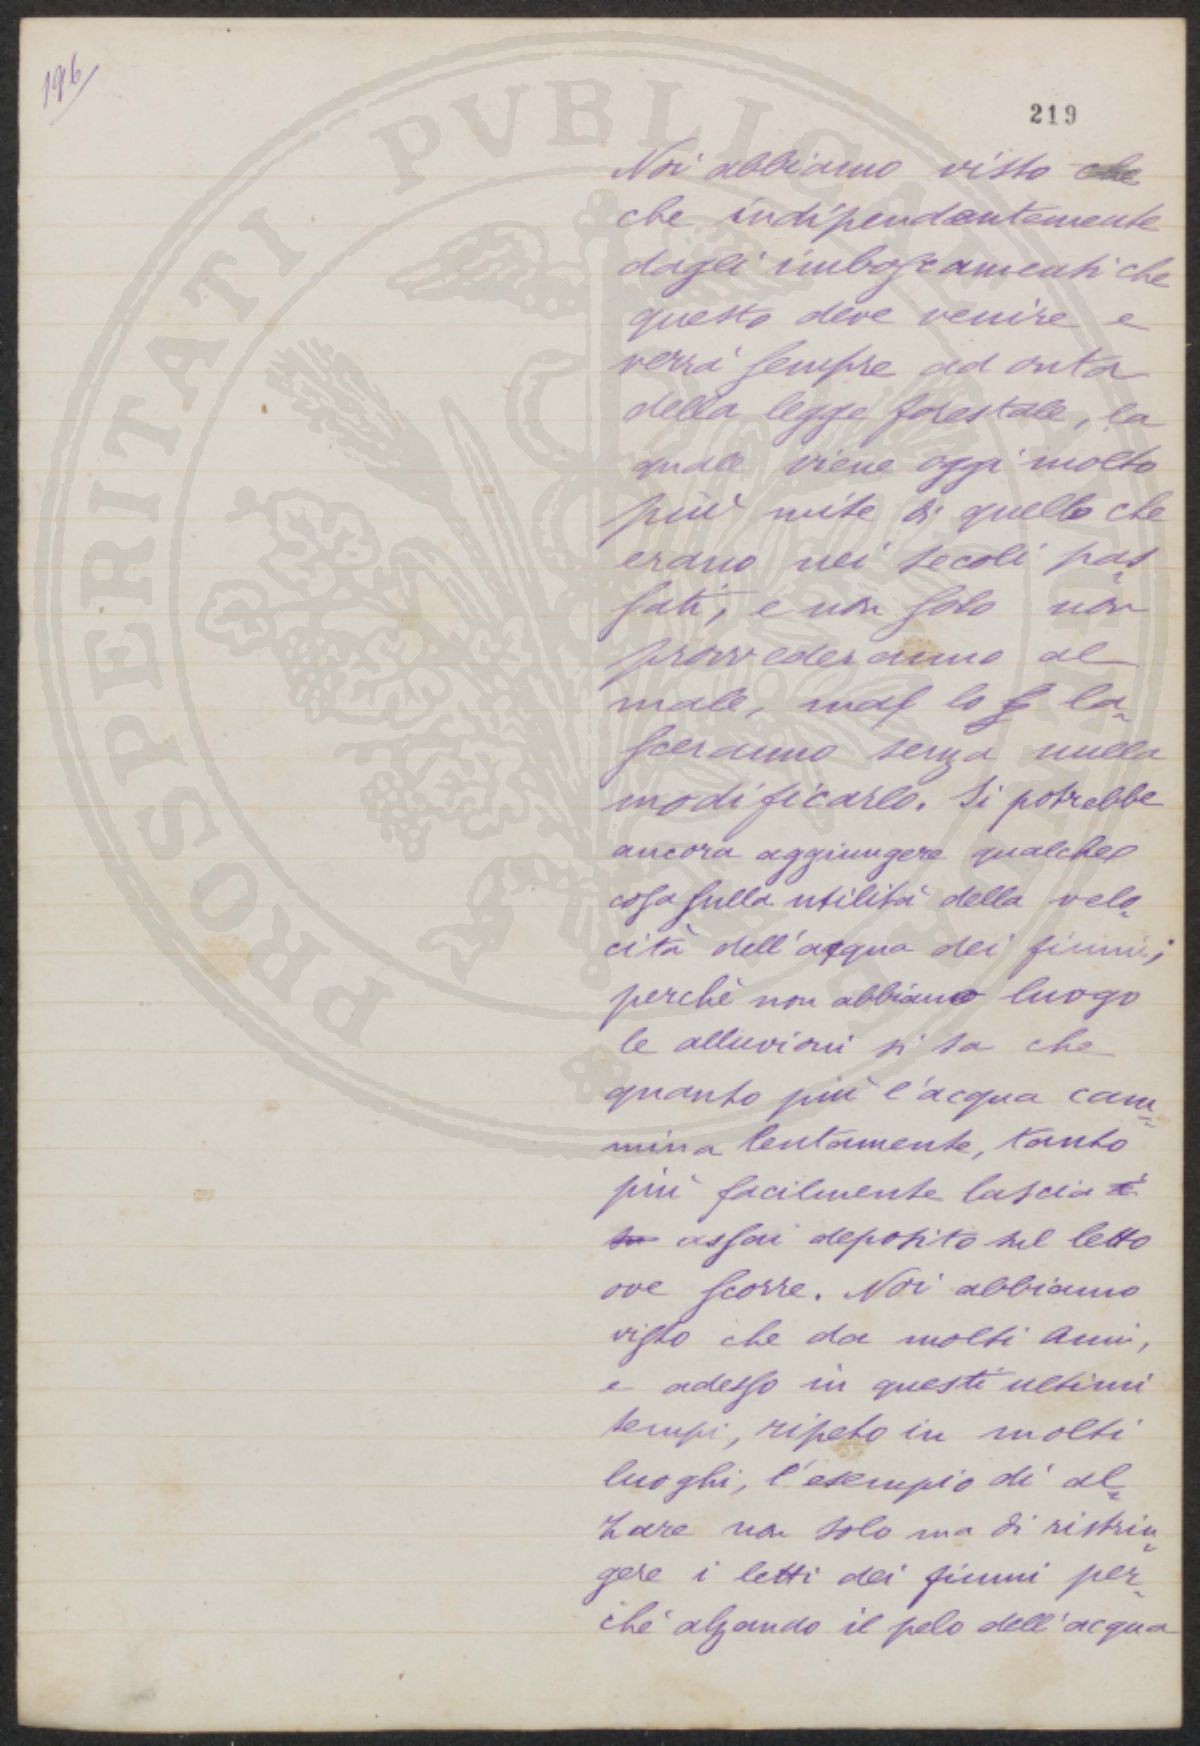 196
219
PROSPERITATI PVBLICAE
Noi abbiamo visto che
che indipendentemente
dagli imboscamenti che
questo deve venire e
verrà sempre ad onta
della legge forestale, la
quale viene oggi molto
più mite di quello che
erano nei secoli pas
sati, e non solo non
provvederanno al
male, ma lo la=
sceranno senza nulla
modificarlo. Si potrebbe
ancora aggiungere qualche
cosa sulla utilità della velo=
cità dell'acqua dei fiumi;
perchè non abbiano luogo
le alluvioni si sa che
quanto più l'acqua cam=
mina lentamente, tanto
più facilmente lascia
assai deposito sul letto
ove scorre. Noi abbiamo
visto che da molti anni,
e adesso in questi ultimi
tempi, ripeto in molti
luoghi, l'esempio di al=
zare non solo ma di ristrin=
gere i letti dei fiumi per=
chè alzando il pelo dell'acqua